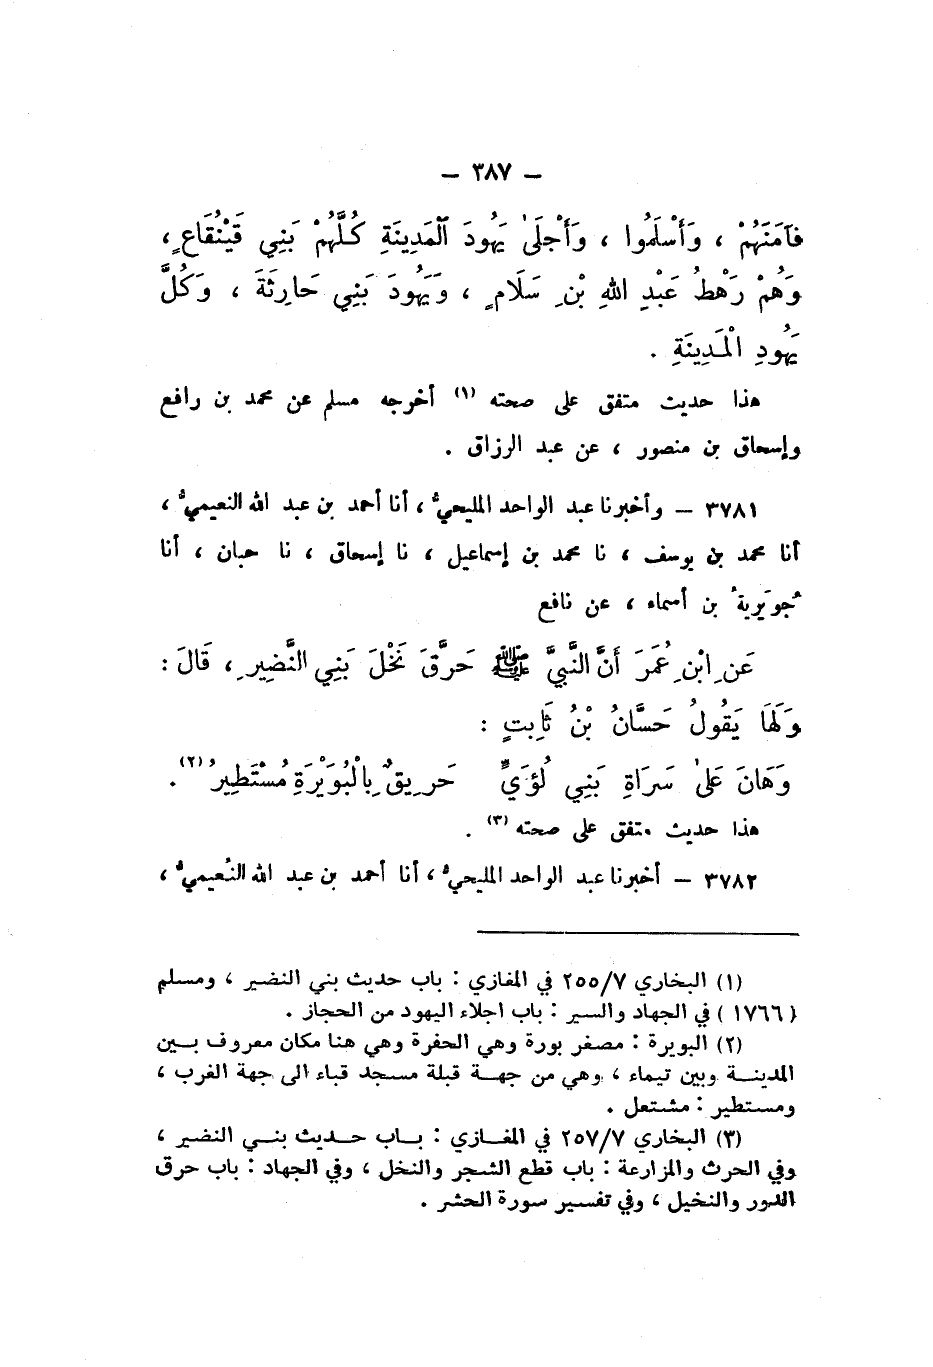 — ٣٨٧ —
فَآمَنَهُمْ ، وَأَسْلَمُوا ، وَأَجْلَىٰ يَهُودَ الْمَدِينَةِ كُلَّهُمْ بَنِي قَيْنُقَاعٍ ،
وَهُمْ رَهْطُ عَبْدِ اللهِ بْنِ سَلَامٍ ، وَيَهُودَ بَنِي حَارِثَةَ ، وَكُلَّ
يَهُودِ الْمَدِينَةِ .
هذا حديث متفق على صحته (١) أخرجه مسلم عن محمد بن رافع
وإسحاق بن منصور ، عن عبد الرزاق .
٣٧٨١ – وأخبرنا عبد الواحد المليحيُّ ، أنا أحمد بن عبد الله النعيميُّ ،
أنا محمد بن يوسف ، نا محمد بن إسماعيل ، نا إسحاق ، نا حبان ، أنا
جُويريةُ بن أسماء ، عن نافع
عَنِ ابْنِ عُمَرَ أَنَّ النَّبِيَّ ﷺ حَرَّقَ نَخْلَ بَنِي النَّضِيرِ ، قَالَ :
وَلَهَا يَقُولُ حَسَّانُ بْنُ ثَابِتٍ :
وَهَانَ عَلَىٰ سَرَاةِ بَنِي لُؤَيٍّ حَرِيقٌ بِالْبُوَيْرَةِ مُسْتَطِيرُ (٢) .
هذا حديث متفق على صحته (٣) .
٣٧٨٢ – أخبرنا عبد الواحد المليحيُّ ، أنا أحمد بن عبد الله النُعيميُّ ،
(١) البخاري ٢٥٥/٧ في المغازي : باب حديث بني النضير ، ومسلم
( ١٧٦٦ ) في الجهاد والسير : باب اجلاء اليهود من الحجاز .
(٢) البويرة : مصغر بورة وهي الحفرة وهي هنا مكان معروف بين
المدينة وبين تيماء ، وهي من جهة قبلة مسجد قباء الى جهة الغرب ،
ومستطير : مشتعل .
(٣) البخاري ٢٥٧/٧ في المغازي : باب حديث بني النضير ،
وفي الحرث والمزارعة : باب قطع الشجر والنخل ، وفي الجهاد : باب حرق
الدور والنخيل ، وفي تفسير سورة الحشر .